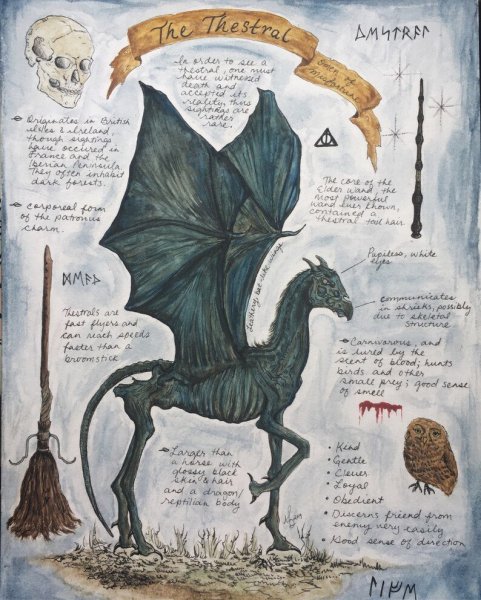 The Thestral
In order to see a
thestral, one must
have witnessed
death and
accepted its
reality, thus
sightings are
rather
rare.
Originates in British
isles & Ireland,
though sightings
have occured in
France and the
Iberian Peninsula.
They often inhabit
dark forests.
corporeal form
of the patronus
charm.
The core of the
Elder wand, the
most powerful
wand ever known,
contained a
thestral tail hair
Leathery, bat-like wings
Pupiless, white
eyes
communicates
in shrieks, possibly
due to skeletal
structure
Thestrals are
fast flyers and
can reach speeds
faster than a
broomstick
Carnivorous, and
is lured by the
scent of blood; hunts
birds and other
small prey; good sense
of smell
Larger than
a horse with
glossy black
skin & hair
and a dragon/
reptilian body
• Kind
• Gentle
• Clever
• Loyal
• Obedient
• Discerns friend from
enemy very easily
• Good sense of direction